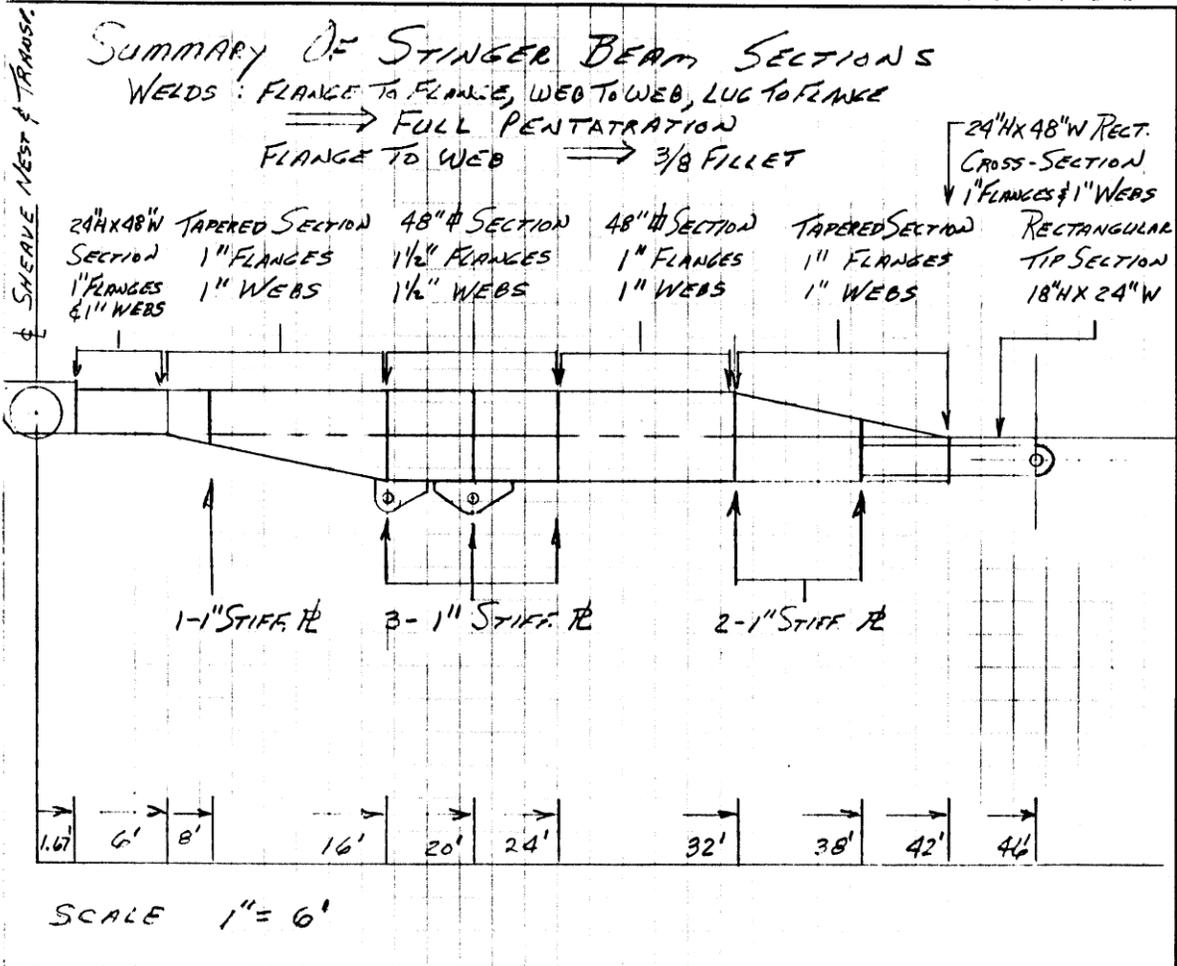 SUMMARY OF STINGER BEAM SECTIONS
WELDS : FLANGE TO FLANGE, WEB TO WEB, LUG TO FLANGE
⟹ FULL PENTATRATION
FLANGE TO WEB ⟹ 3/8 FILLET
℄ SHEAVE NEST & TRANSP.
24"H X 48"W RECT.
CROSS-SECTION
1" FLANGES & 1" WEBS
24"H X 48"W
SECTION
1" FLANGES
& 1" WEBS
TAPERED SECTION
1" FLANGES
1" WEBS
48" ⏀ SECTION
1 1/2" FLANGES
1 1/2" WEBS
48" ⏀ SECTION
1" FLANGES
1" WEBS
TAPERED SECTION
1" FLANGES
1" WEBS
RECTANGULAR
TIP SECTION
18"H X 24"W
1-1" STIFF. PL
3- 1" STIFF. PL
2-1" STIFF PL
1.67' 6' 8' 16' 20' 24' 32' 38' 42' 46'
SCALE 1" = 6'